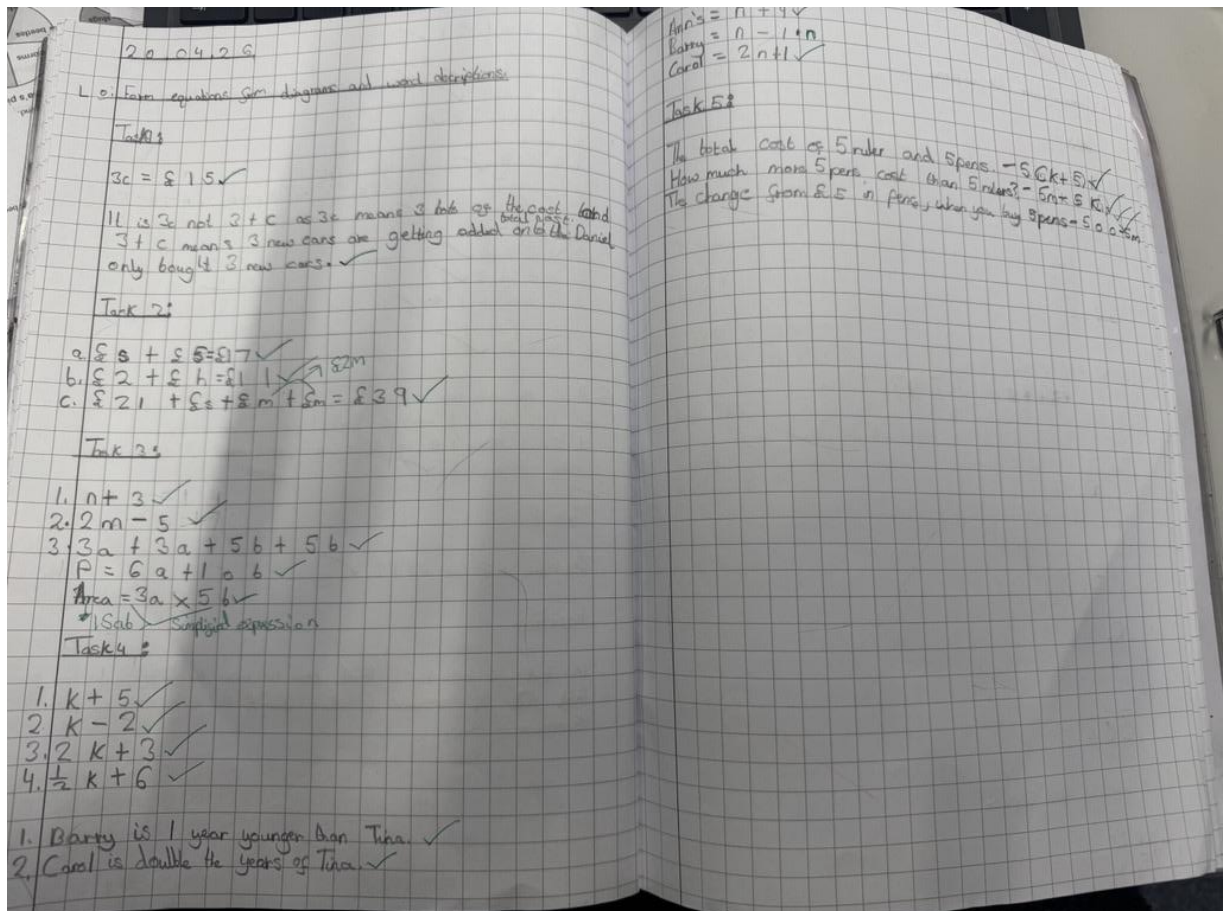 20.04.26
L O: Form equations from diagrams and word descriptions.
Task 1:
3c = £15 ✓
It is 3c not 3+c as 3c means 3 lots of the cost and
3+c means 3 new cars are getting added onto the Daniel
only bought 3 new cars. ✓
Task 2:
a. £s + £5=£17 ✓
b. £2 + £h =£11 ✓
£2m
c. £21 + £s + £m + £m = £39 ✓
Task 3:
1. n + 3 ✓
2. 2m - 5 ✓
3. 3a + 3a + 5b + 5b ✓
P = 6a + 10b ✓
Area = 3a × 5b ✓
15ab simplified expression
Task 4:
1. k + 5 ✓
2. k - 2 ✓
3. 2k + 3 ✓
4. ½ k + 6 ✓
1. Barry is 1 year younger than Tina. ✓
2. Carol is double the years of Tina. ✓
Ann's = n + 4 ✓
Barry = n - 1
Carol = 2n+1 ✓
Task 5:
The total cost of 5 ruler and 5 pens. - 5(k+5) ✓
How much more 5 pens cost than 5 rulers? - 5m - 5k ✓
The change from £5 in pence, when you buy 5pens - 500-5m